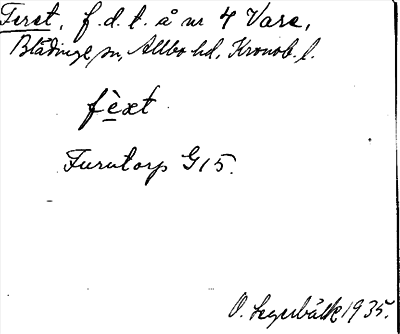 Feret, f.d.t. å nr 4 Vare,
Blädinge sn, Allbo hd, Kronob. l.
fèxt
Furutorp G15.
O. Legerbälk 1935.